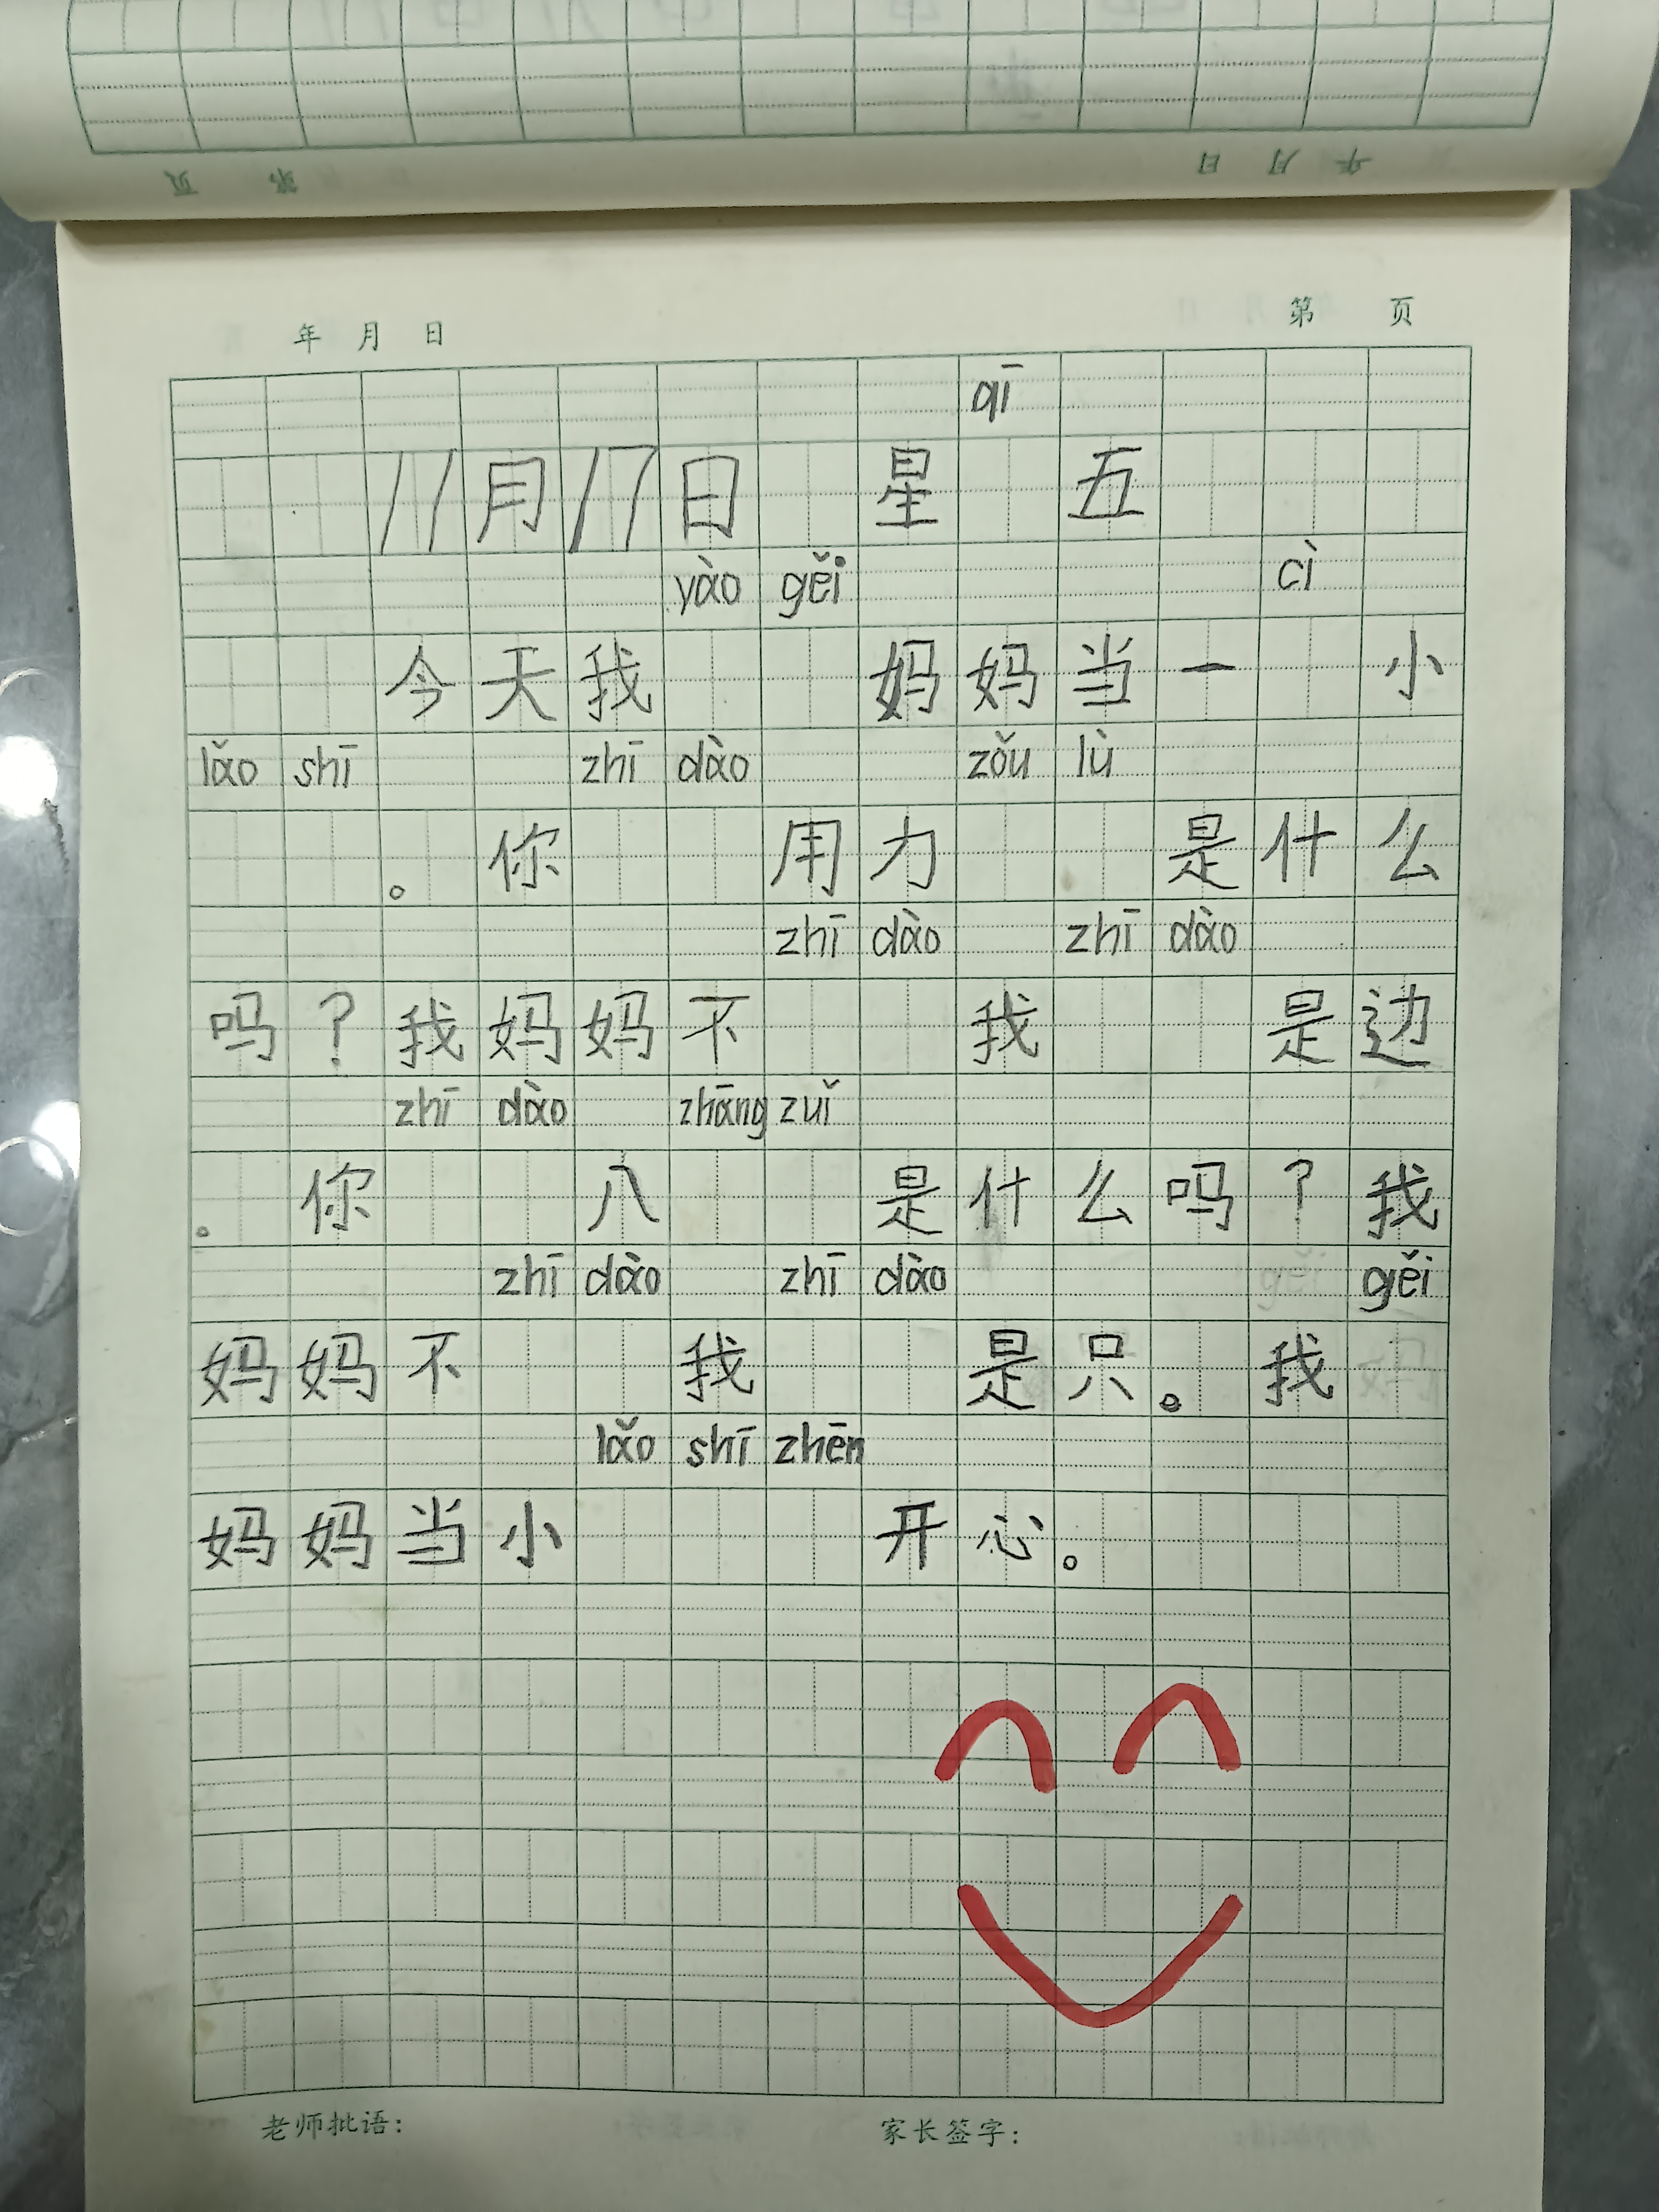 年 月 日 第 页
年 月 日 第 页
qī
11月17日 星 五
yào gěi cì
今天我 妈妈当一 小
lǎo shī zhī dào zǒu lù
。你 用力 是什么
zhī dào zhī dào
吗?我妈妈不 我 是边
zhī dào zhāng zuǐ
。你 八 是什么吗?我
zhī dào zhī dào gěi
妈妈不 我 是只。我
lǎo shī zhēn
妈妈当小 开心。
老师批语: 家长签字: